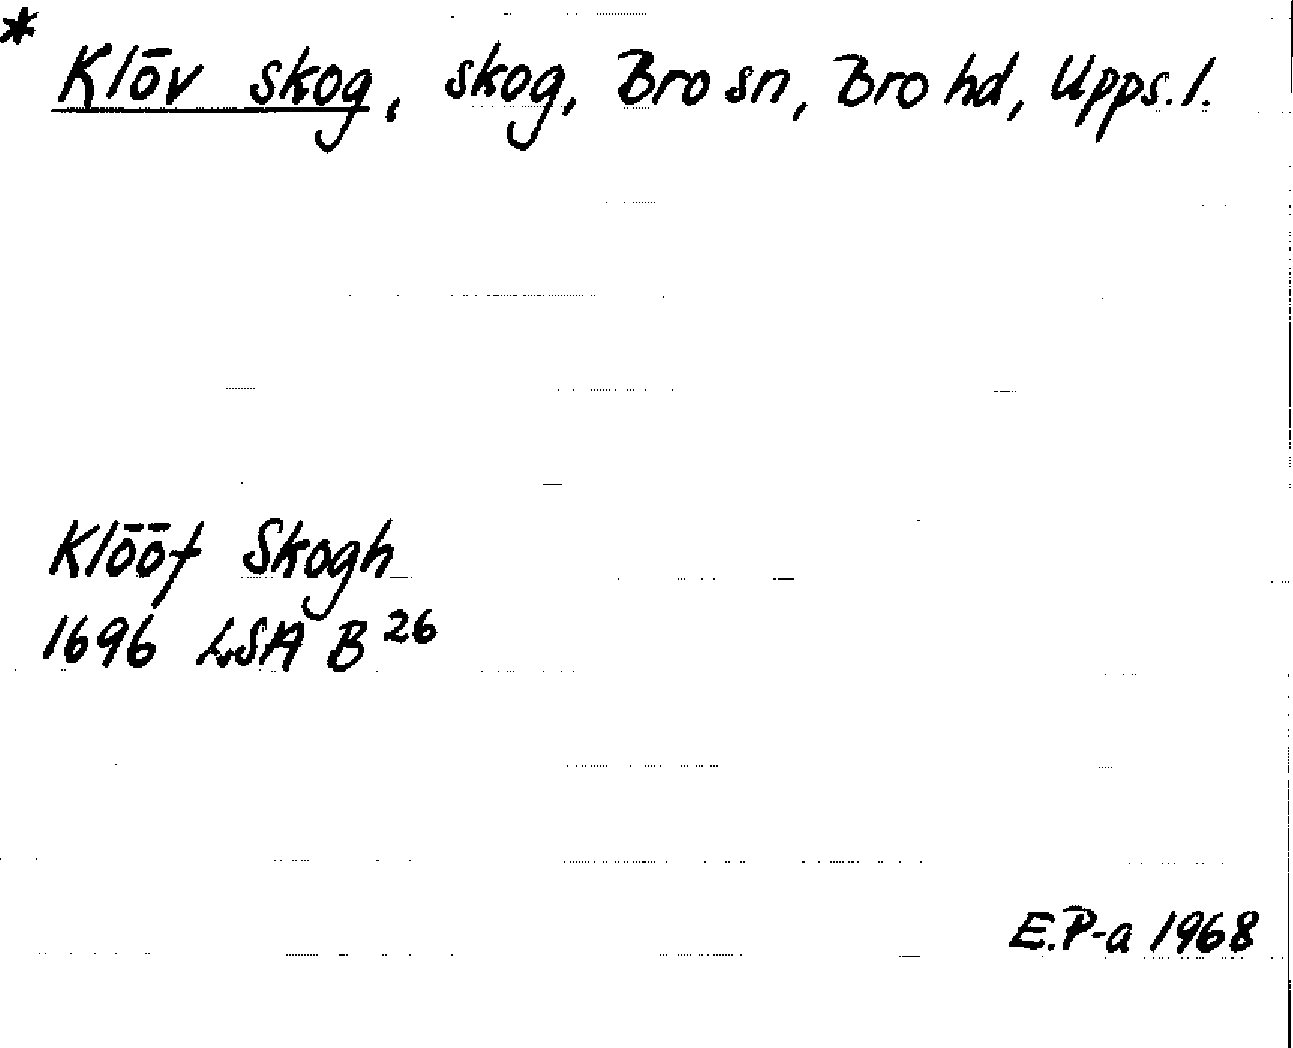 * Klöv skog, skog, Bro sn, Bro hd, Upps. l.
Klööf Skogh
1696 LSA B 26
E.P-a 1968